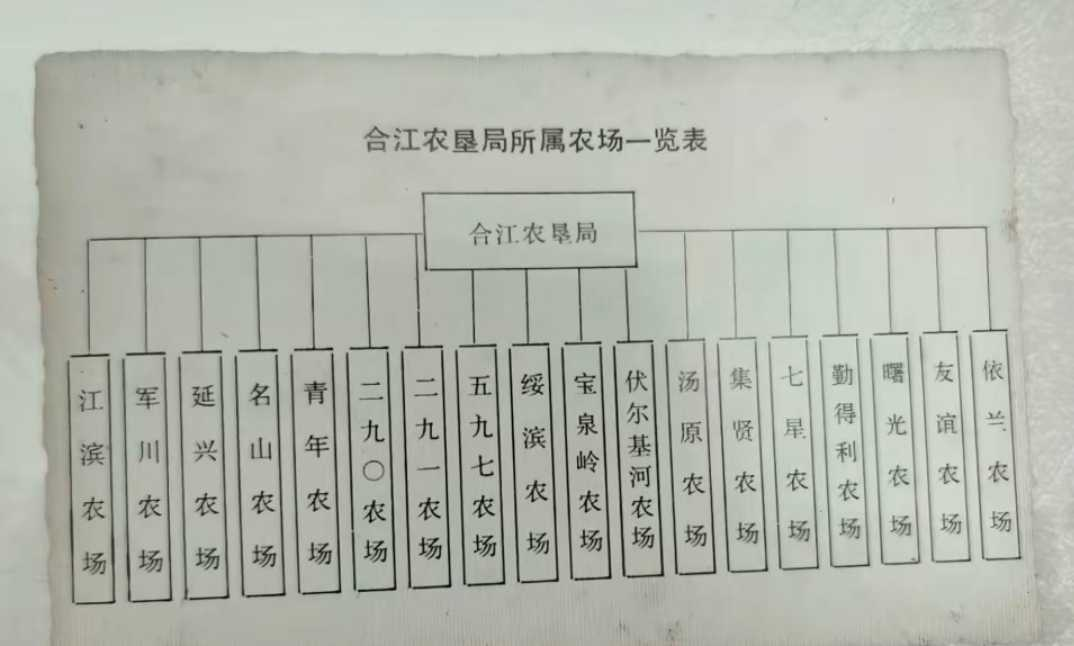 合江农垦局所属农场一览表
合江农垦局
江滨农场
军川农场
延兴农场
名山农场
青年农场
二九〇农场
二九一农场
五九七农场
绥滨农场
宝泉岭农场
伏尔基河农场
汤原农场
集贤农场
七星农场
勤得利农场
曙光农场
友谊农场
依兰农场